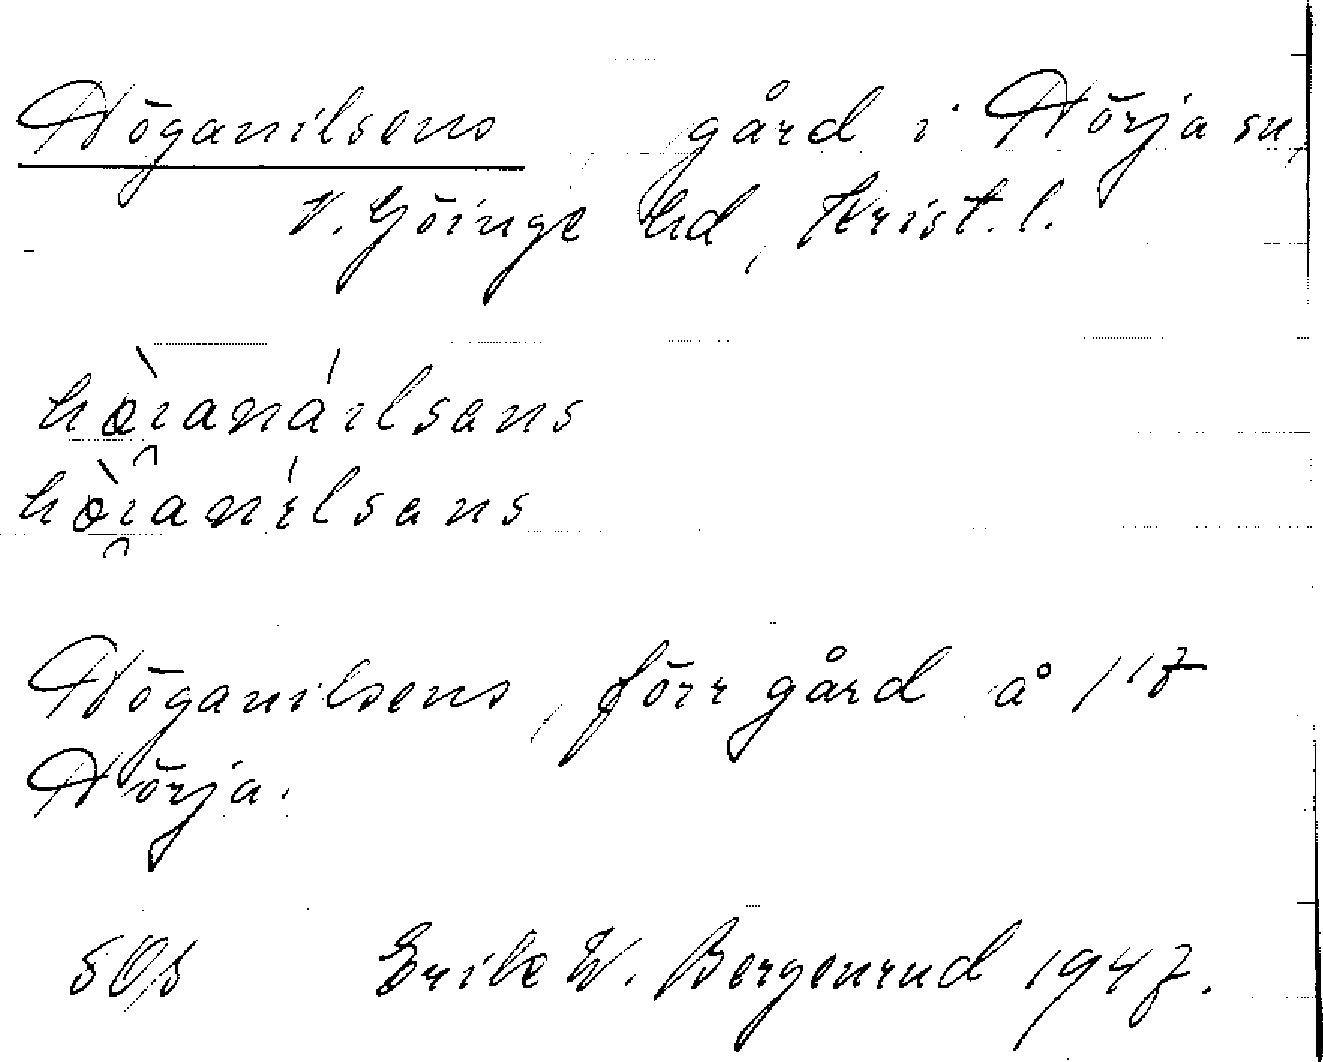 Höganilsens gård i Hörja sn,
V. Göinge hd, Krist. l.
hò̤i̯anáilsans
hòi̯anílsans
Höganilsens, förr gård å 1/17
Hörja.
Erik W. Bergenrud 1947.